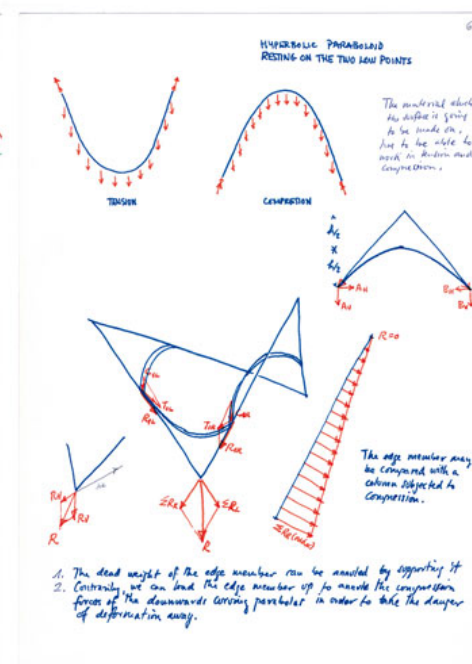 6
HYPERBOLIC PARABOLOID
RESTING ON THE TWO LOW POINTS
The material which
the surface is going
to be made on,
has to be able to
work in tension and
compression.
TENSION
COMPRETION
h/2
h/2
AH
AV
BH
BV
R=0
The edge member may
be compared with a
column subjected to
compression.
R
R
1. The dead weight of the edge member can be annuled by supporting it
2. Contrarily, we can load the edge member up to annule the compression
forces of the downwards curving parabolas in order to take the danger
of deformation away.